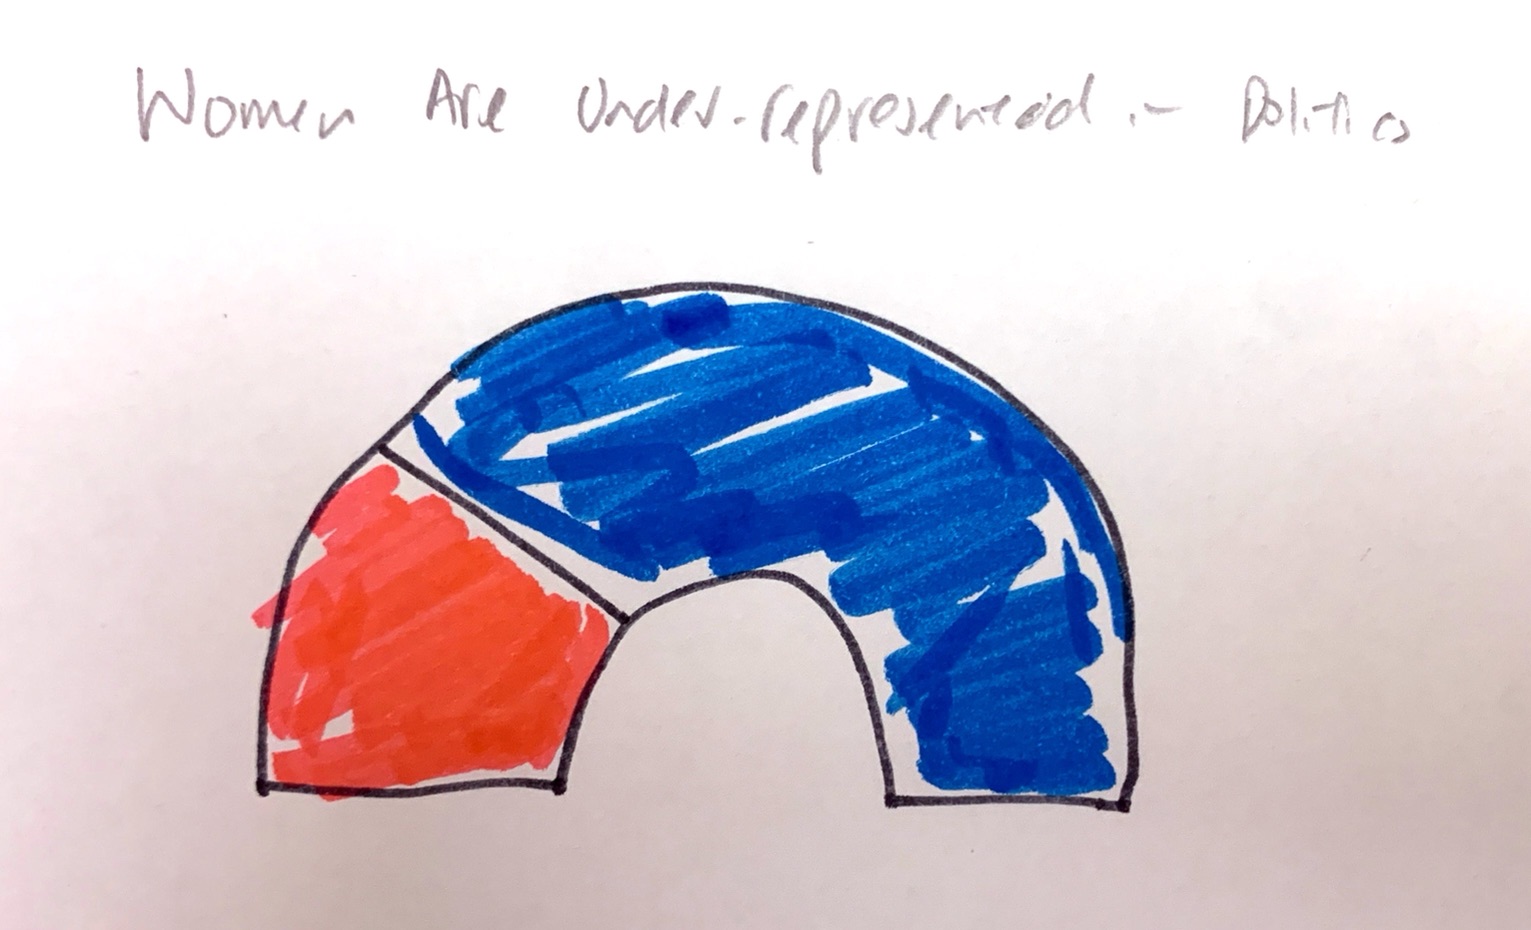 Women Are Under-represented in Politics